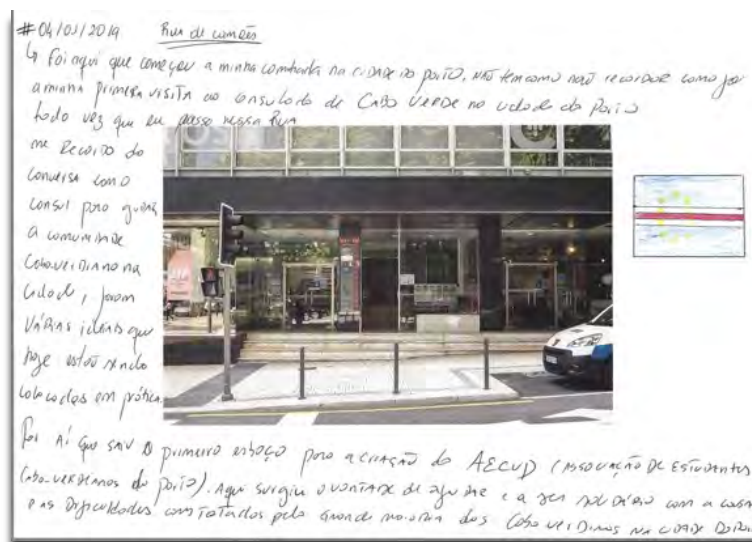 #04/01/2019 Rua de camões
↳ Foi aqui que começou a minha caminhada na cidade do porto, não tem como não recordar como foi
a minha primeira visita ao consulado de CABO VERDE na cidade do Porto
toda vez que eu passo nessa Rua
me Recordo da
conversa com o
consul para guiar
a comunidade
Caboverdiana na
cidade, foram
Várias ideias que
hoje estão sendo
colocadas em prática.
Foi Aí que saiu o primeiro esboço para a criação da AECVP (ASSOCIAÇÃO DE ESTUDANTES
Cabo-verdianos do porto). Aqui surgiu a vontade de ajudar e a ser solidário com a
e as Dificuldades constatadas pela Grande maioria dos Cabo verdianos na CIDADE DO